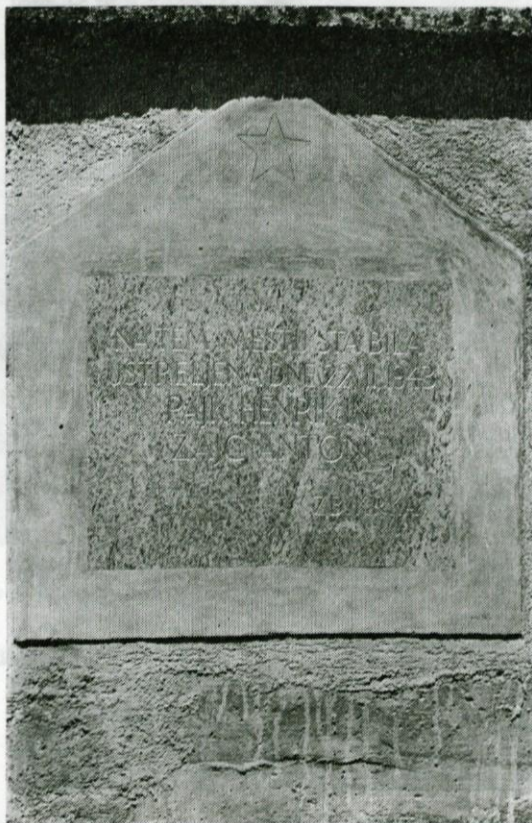 NA TEM MESTU STA BILA
USTRELJENA DNE 22. 1. 1943
PAJK HENRIK IN
ZAJC ANTON
ZB